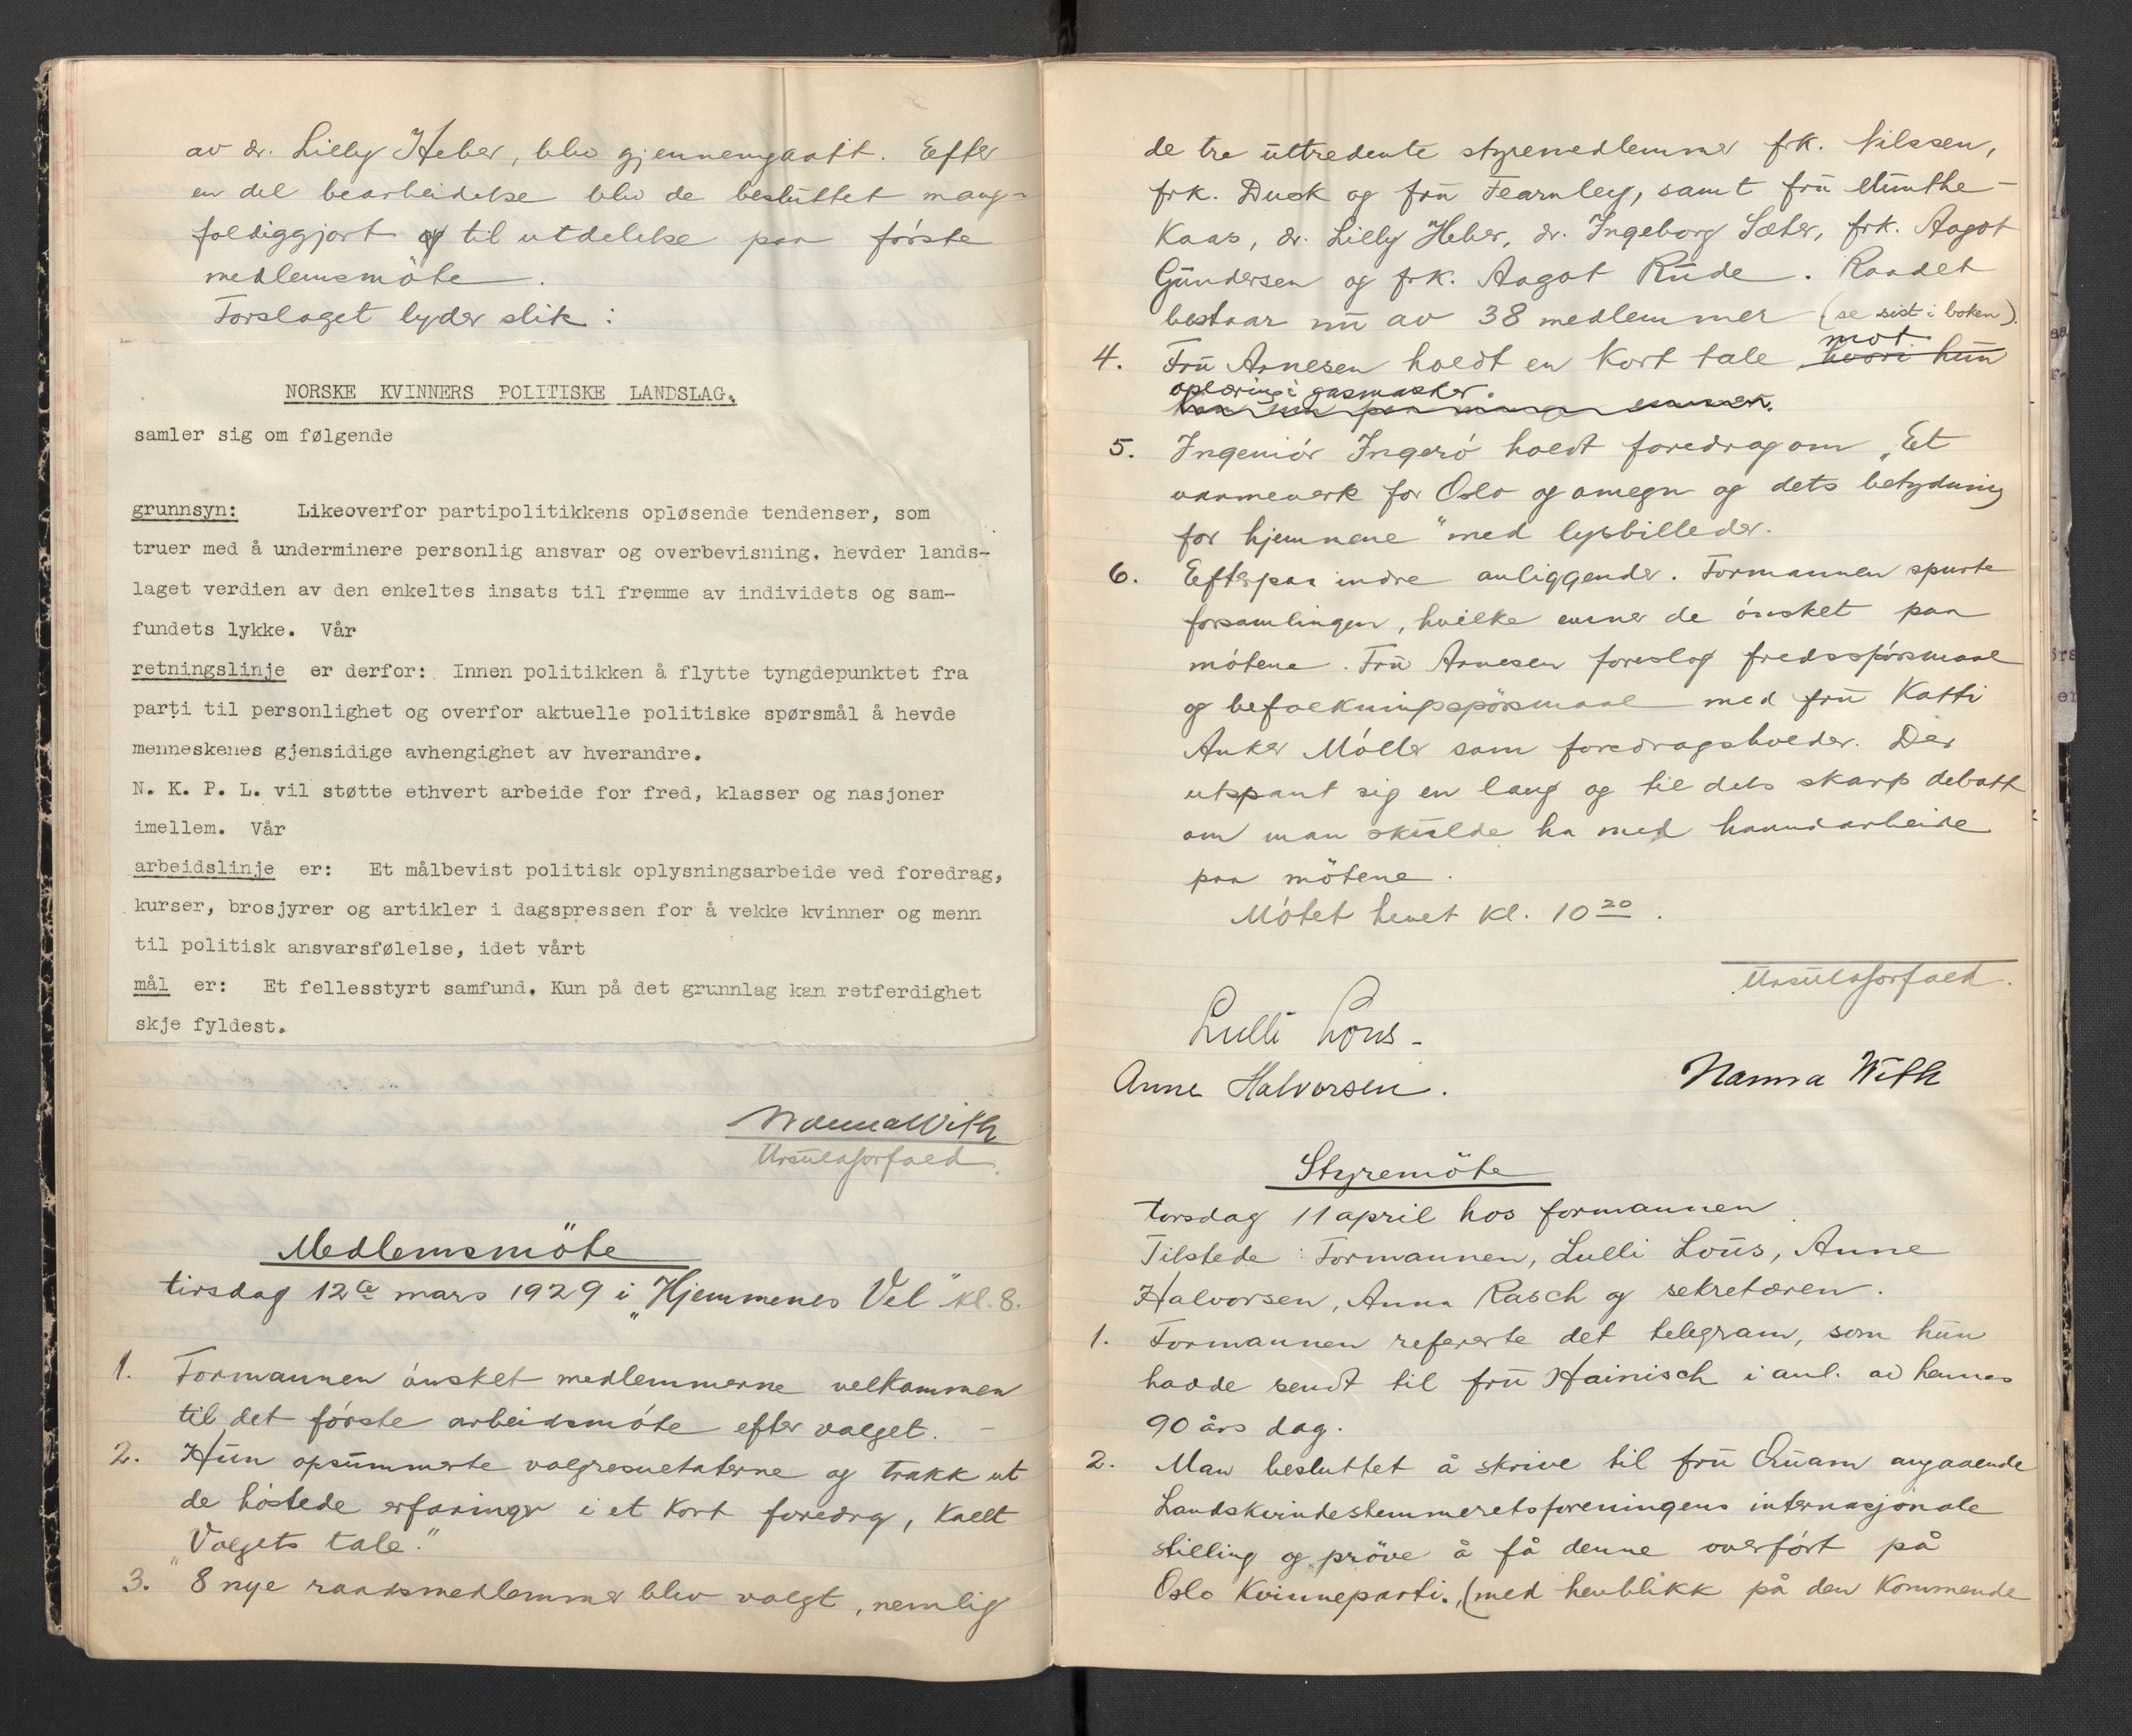 av dr. Lilly Heber, blev gjennemgaatt. Efter
en del bearbeidelse blev de besluttet mang-
foldiggjort og til utdelelse paa første
medlemsmöte.
Forslaget lyder slik :
NORSKE KVINNERS POLITISKE LANDSLAG.
samler sig om følgende
grunnsyn: Likeoverfor partipolitikkens opløsende tendenser, som
truer med å underminere personlig ansvar og overbevisning. hevder lands-
laget verdien av den enkeltes insats til fremme av individets og sam-
fundets lykke. Vår
retningslinje er derfor: Innen politikken å flytte tyngdepunktet fra
parti til personlighet og overfor aktuelle politiske spørsmål å hevde
menneskenes gjensidige avhengighet av hverandre.
N. K. P. L. vil støtte ethvert arbeide for fred, klasser og nasjoner
imellem. Vår
arbeidslinje er: Et målbevist politisk oplysningsarbeide ved foredrag,
kurser, brosjyrer og artikler i dagspressen for å vekke kvinner og menn
til politisk ansvarsfølelse, idet vårt
mål er: Et fellesstyrt samfund. Kun på det grunnlag kan retferdighet
skje fyldest.
Nanna With
Ursula Sorfald.
Medlemsmöte
tirsdag 12te mars 1929 i „Hjemmenes Vel" kl. 8.
1. Formannen ónsket medlemmerne velkommen
til det fórste arbeidsmóte efter valget. -
2. Hun opsummerte valgresultaterne og trakk ut
de höstede erfaringer i et kort foredrag, kallt
„Valgets tale."
3. 8 nye raadsmedlemmer blev valgt, nemlig
de tre uttredente styremedlemmer frk. Nilssen,
frk. Duck og fru Fearnley, samt fru Munthe-
Kaas, dr. Lilly Heber, dr. Ingeborg Sæter, frk. Aagot
Gundersen og frk. Aagot Rude. Raadet
bestaar nu av 38 medlemmer (se sist i boken).
4. Fru Arnesen holdt en kort tale hvori hun mot
oplæring i gasmasker.
5. Ingeniór Ingeró holdt foredrag om „Et
varmeverk for Oslo og omegn og dets betydning
for hjemmene" med lysbilleder.
6. Efterpaa indre anliggender. Formannen spurte
forsamlingen, hvilke emner de ónsket paa
mótene. Fru Arnesen foreslog fredsspórsmaal
og befolkningsspörsmaal med fru Katti
Anker Móller som foredragsholder. Der
utspant sig en lang og til dels skarp debatt
om man skulde ha med haandarbeide
paa mötene.
Mótet hevet kl. 10 20.
Ursula Sorfald.
Lulli Lous -
Anne Halvorsen.
Nanna With
Styremöte
torsdag 11 april hos formannen.
Tilstede : Formannen, Lulli Lous, Anne
Halvorsen, Anna Rasch og sekretæren.
1. Formannen refererte det telegram, som hun
hadde sendt til fru Hainisch i anl. av hennes
90 års dag.
2. Man besluttet å skrive til fru Quam angaaende
Landskvindestemmeretsforeningens internasjonale
stilling og pröve å få denne overfórt på
Oslo Kvinneparti. (med henblikk på den kommende